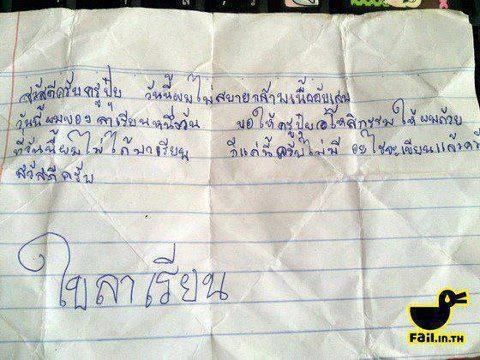 สวัสดีครับครูปุ๋ย วันนี้ผมไม่
วันนี้ผมของลาเรียนหนึ่งวัน ขอให้ครูปุ๋ยอโหสิกรรมให้ผมด้วย
ที่วันนี้ผมไม่ได้มาเรียน ก็แค่นี้ครับไม่มี อะไรจะเขียนแล้วครั
สวัสดีครับ
ใบลาเรียน
FAiL.in.TH